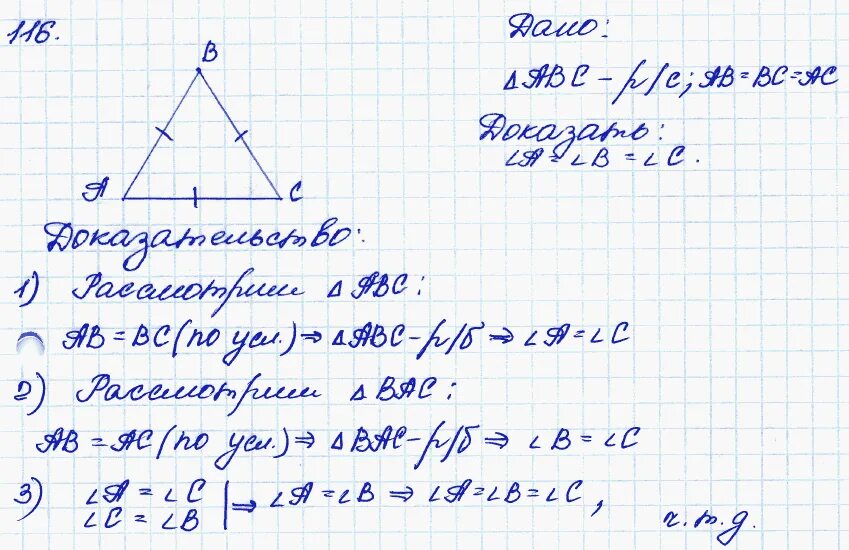 116.
Дано:
△ABC – р/с; AB = BC = AC
Доказать:
∠A = ∠B = ∠C.
B
A
C
Доказательство:
1) Рассмотрим △ABC:
AB = BC (по усл.) ⇒ △ABC – р/б ⇒ ∠A = ∠C
2) Рассмотрим △BAC:
AB = AC (по усл.) ⇒ △BAC – р/б ⇒ ∠B = ∠C
3) ∠A = ∠C | ⇒ ∠A = ∠B ⇒ ∠A = ∠B = ∠C,
∠C = ∠B
ч.т.д.